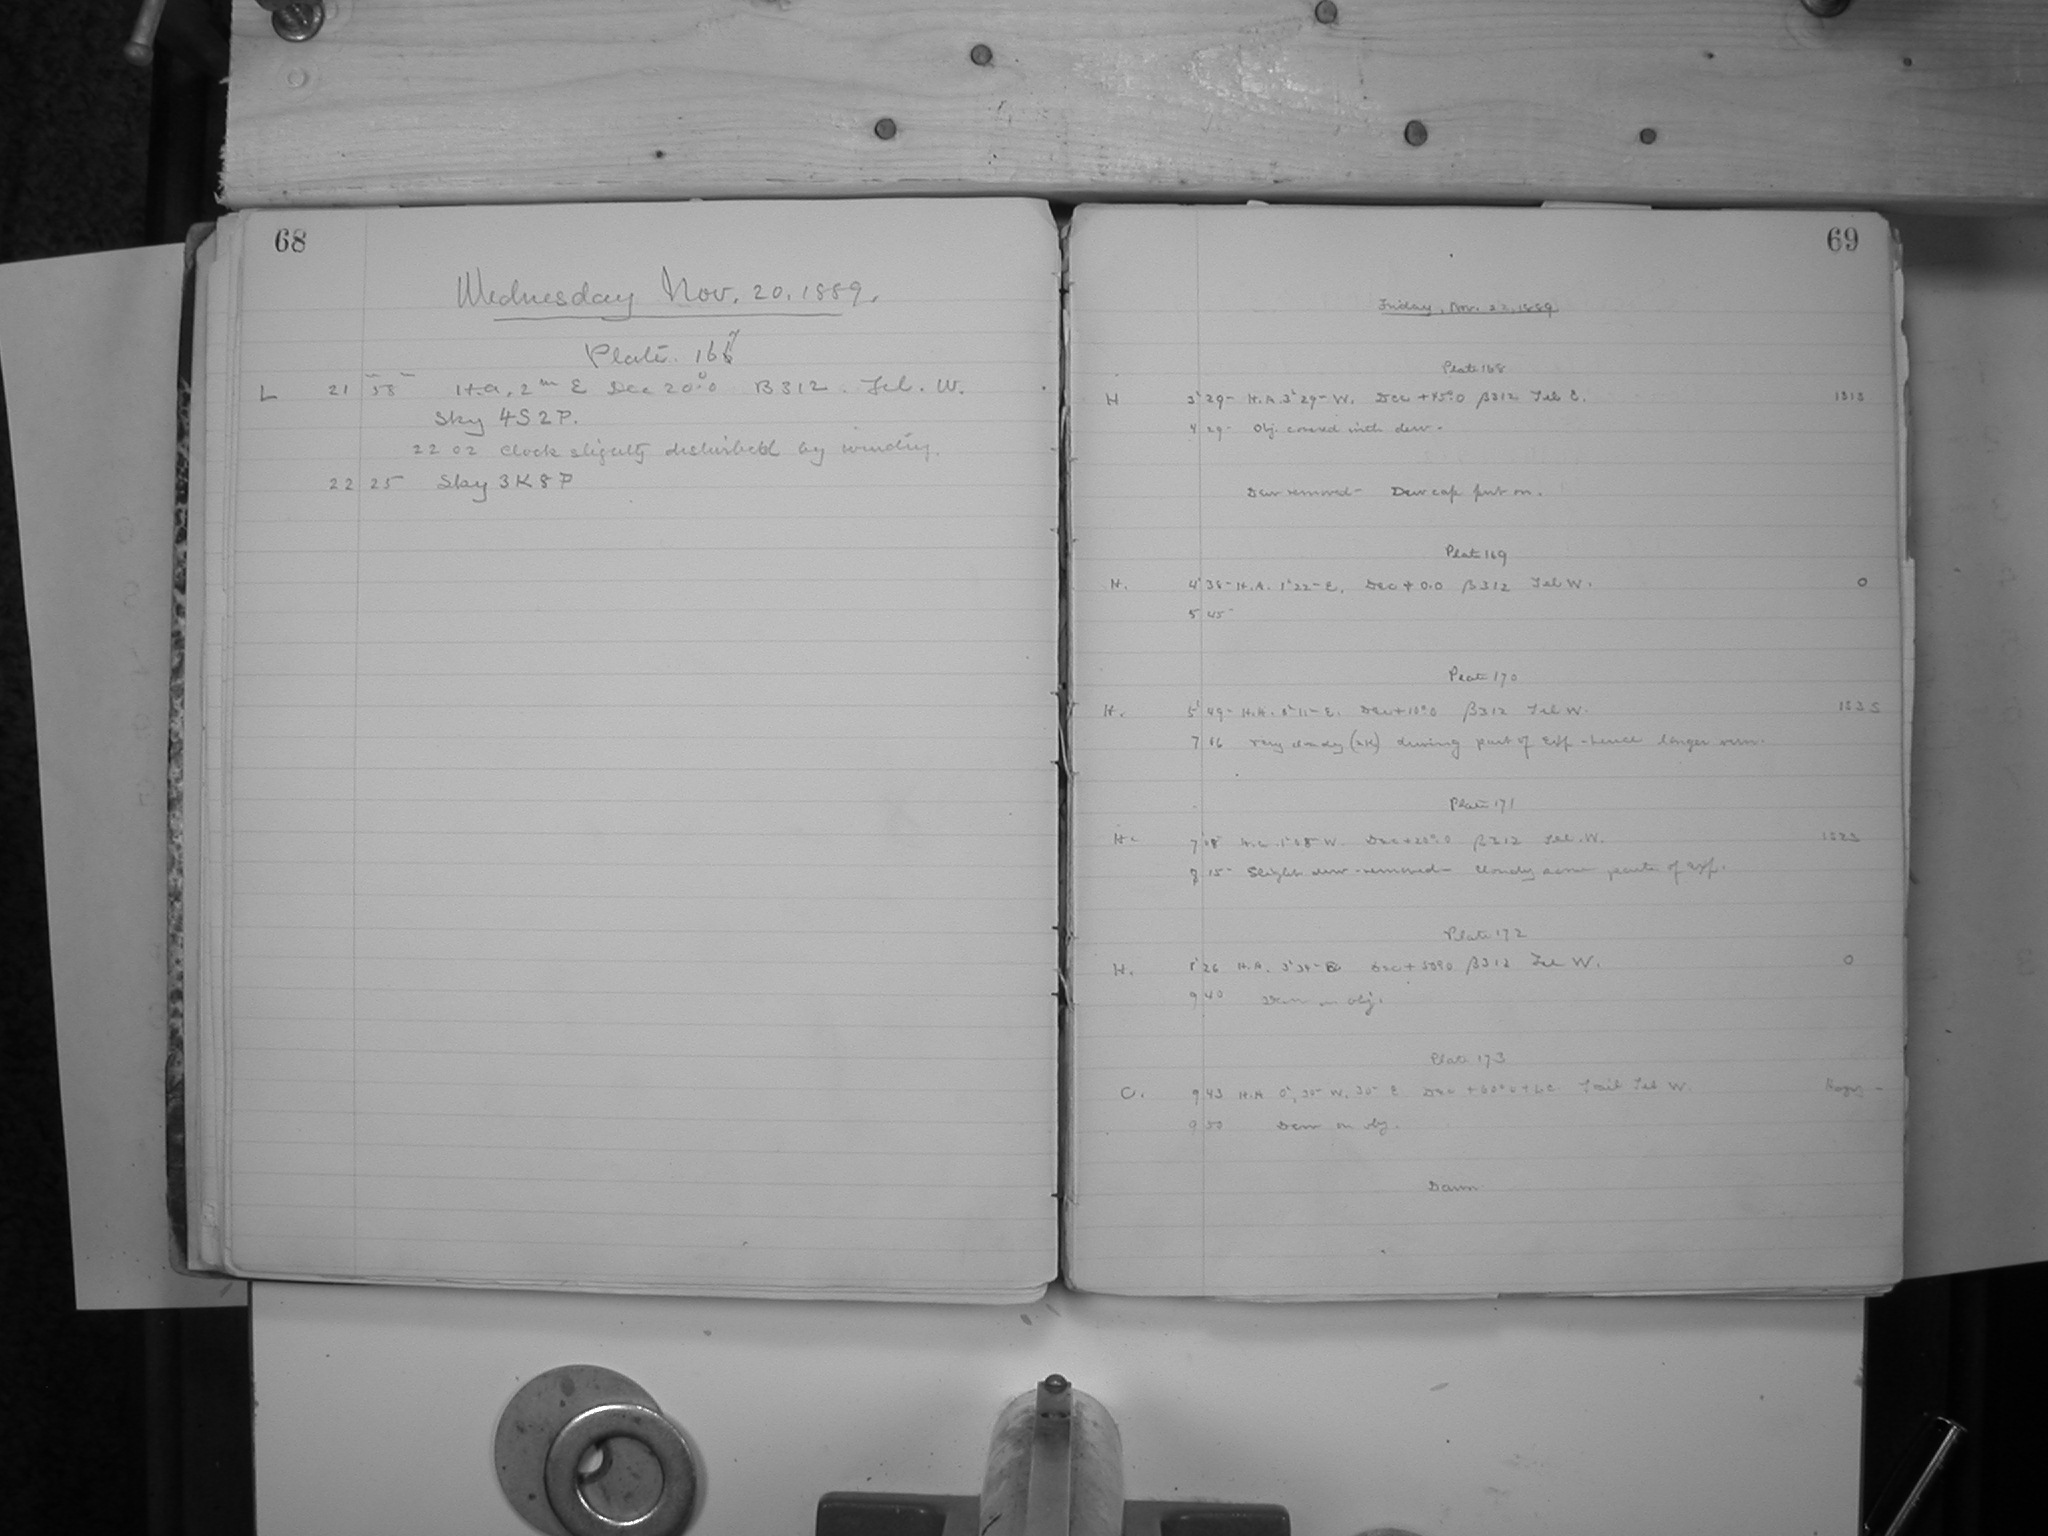 68
Wednesday Nov. 20, 1889.
Plate 167
L 21 58 H.a. 2m E Dec 20°.0 B312. Tel. W.
Sky 4S2P.
22 02 Clock slightly disturbed by winding.
22 25 Sky 3K8P
69
Friday, Nov. 22, 1889
Plate 168
H 3 29 H.A. 3 29 W. Dec +45°.0 β312 Tel E.
4 29 Obj. covered with dew.
Dew removed - Dew cap put on.
Plate 169
H. 4 38 H.A. 1 22 E. Dec + 0.0 β312 Tel W. 0
5 45
Plate 170
H. 5 49 H.A. 0 11 E. Dec +10°.0 β312 Tel W.
7 06 Very cloudy (2K) during part of Exp - hence longer
Plate 171
H. 7 08 1 08 W. Dec +20°.0 β312 Tel. W.
8 15 Slight dew - removed - Cloudy some parts of exp.
Plate 172
H. 8 26 H.A. E Dec + 50°.0 β312 Tel W. 0
9 40 Dew on obj.
Plate 173
C. 9 43 H.A 0, 30 W. 30 E Dec +60° Trail Tel W.
9 50 Dew on obj.